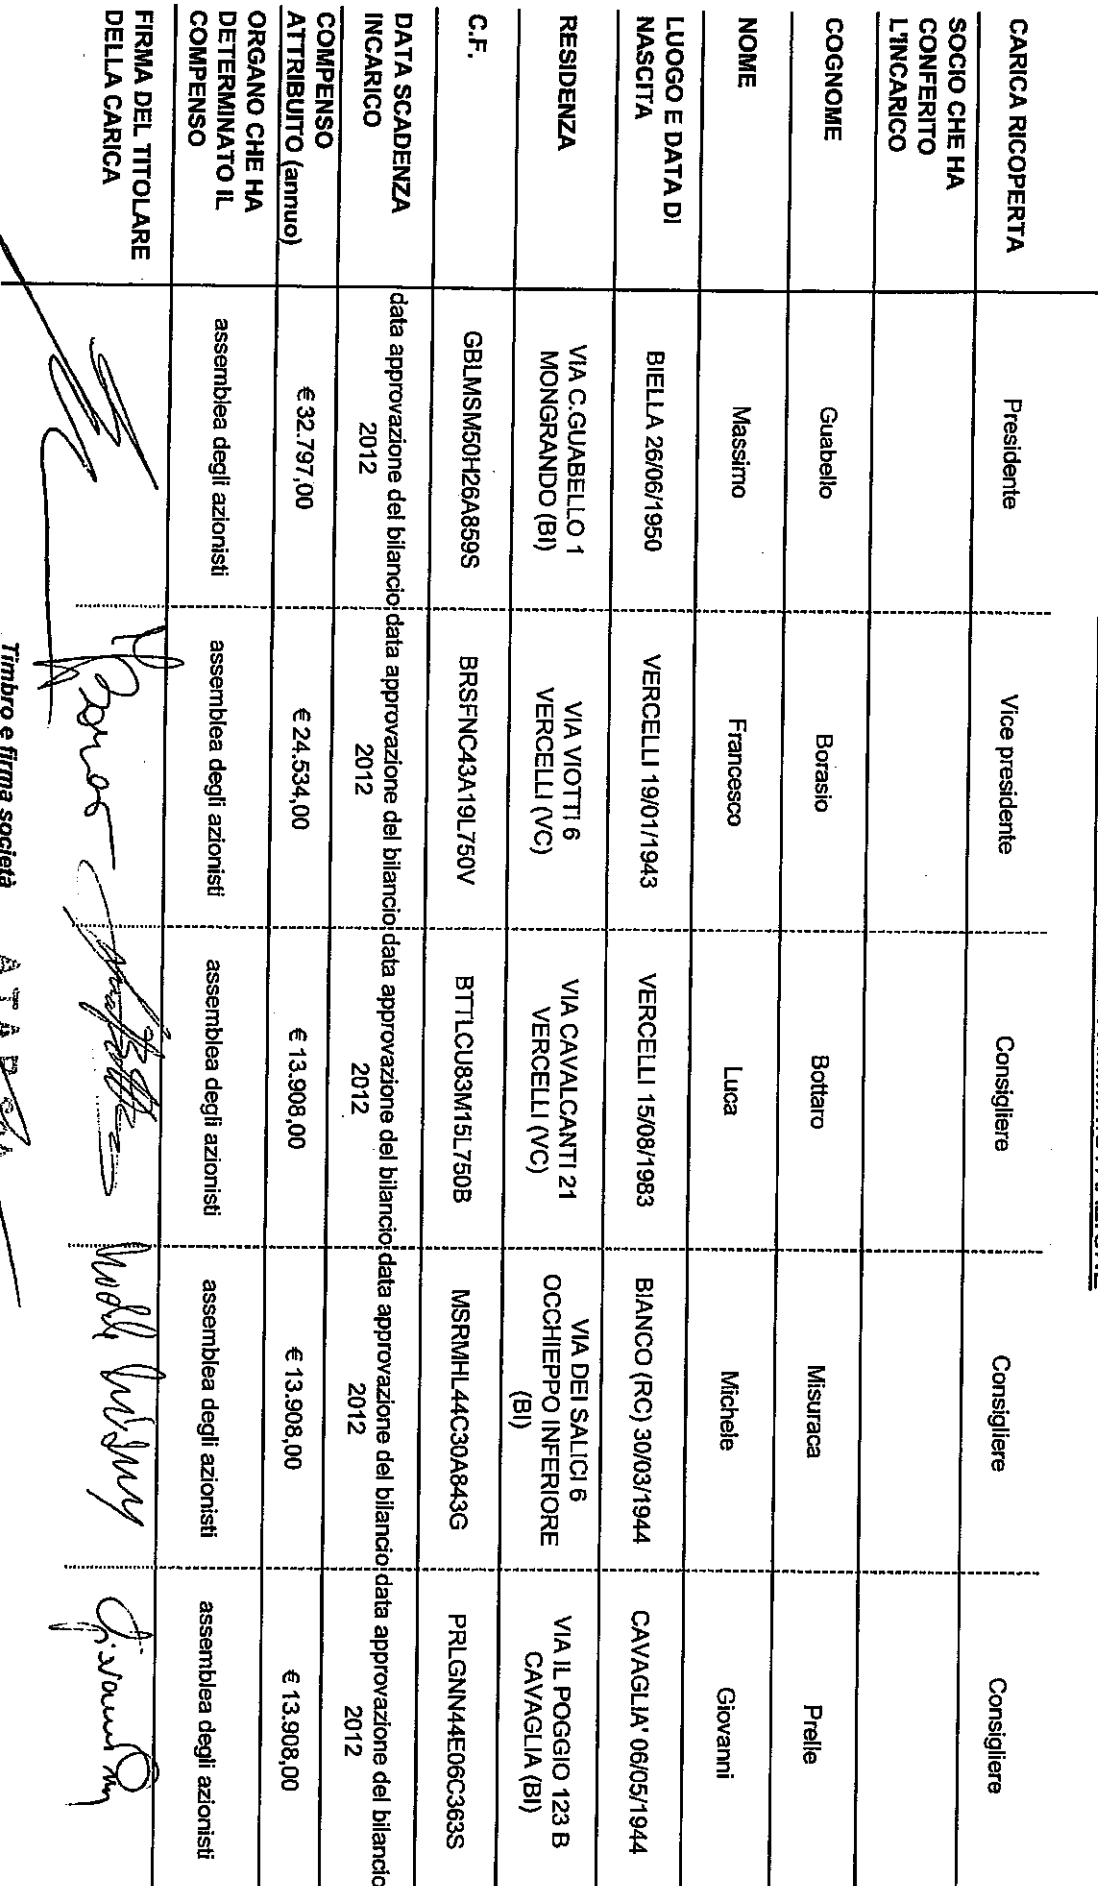 CARICA RICOPERTA Presidente Vice presidente Consigliere Consigliere Consigliere
SOCIO CHE HA
CONFERITO
L'INCARICO
COGNOME Guabello Borasio Bottaro Misuraca Prelle
NOME Massimo Francesco Luca Michele Giovanni
LUOGO E DATA DI
NASCITA
BIELLA 26/06/1950 VERCELLI 19/01/1943 VERCELLI 15/08/1983 BIANCO (RC) 30/03/1944 CAVAGLIA' 06/05/1944
RESIDENZA
VIA C.GUABELLO 1
MONGRANDO (BI)
VIA VIOTTI 6
VERCELLI (VC)
VIA CAVALCANTI 21
VERCELLI (VC)
VIA DEI SALICI 6
OCCHIEPPO INFERIORE
(BI)
VIA IL POGGIO 123 B
CAVAGLIA (BI)
C.F. GBLMSM50H26A859S BRSFNC43A19L750V BTTLCU83M15L750B MSRMHL44C30A843G PRLGNN44E06C363S
DATA SCADENZA
INCARICO
data approvazione del bilancio data approvazione del bilancio data approvazione del bilancio data approvazione del bilancio data approvazione del bilancio
2012 2012 2012 2012 2012
COMPENSO
ATTRIBUITO (annuo)
€ 32.797,00 € 24.534,00 € 13.908,00 € 13.908,00 € 13.908,00
ORGANO CHE HA
DETERMINATO IL
COMPENSO
assemblea degli azionisti assemblea degli azionisti assemblea degli azionisti assemblea degli azionisti assemblea degli azionisti
FIRMA DEL TITOLARE
DELLA CARICA
Timbro e firma società